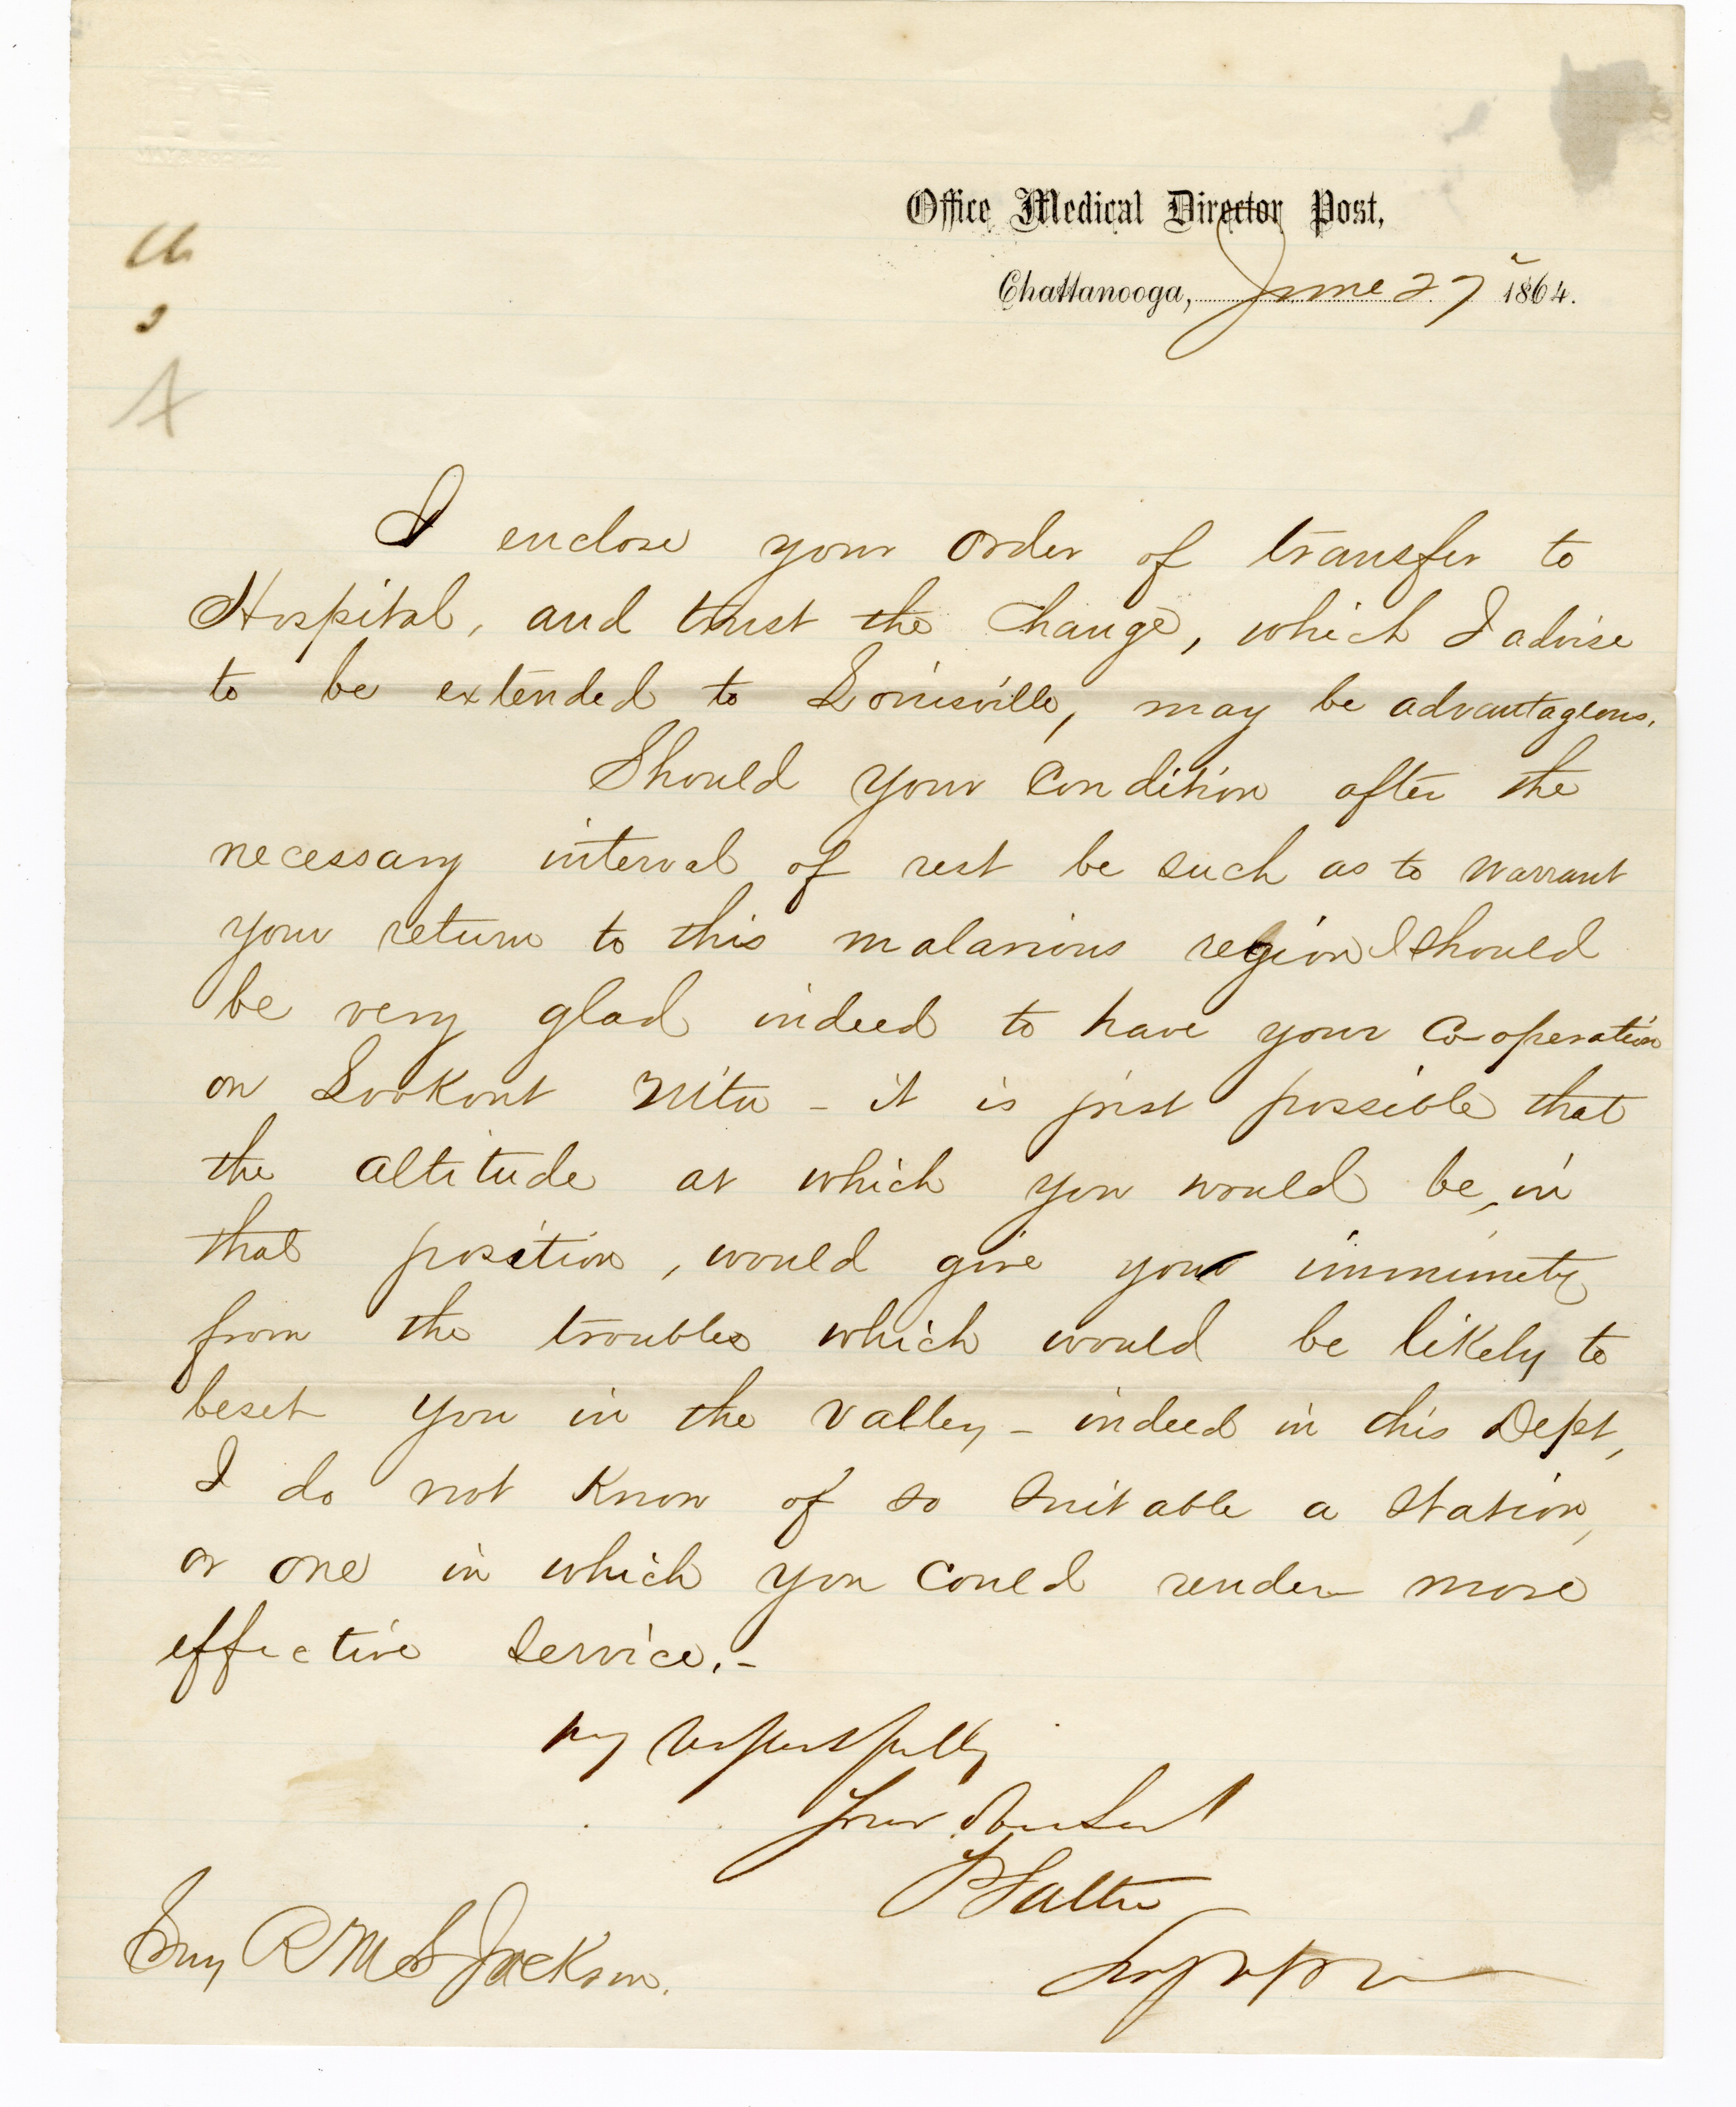 Office Medical Director Post,
Chattanooga, June 27 1864.
I enclose your order of transfer to
Hospital, and trust the change, which I advise
to be extended to Louisville, may be advantageous.
Should your condition after the
necessary interval of rest be such as to warrant
your return to this malarious region I should
be very glad indeed to have your Co-operation
on Lookout Mtn - it is just possible that
the altitude at which you would be, in
that position, would give you immunity
from the troubles which would be likely to
beset you in the valley - indeed in this Dept,
I do not know of so suitable a station,
or one in which you could render more
effective service.-
Very respectfully
Your Obt Servt
F Salter
Surg R M S Jackson.